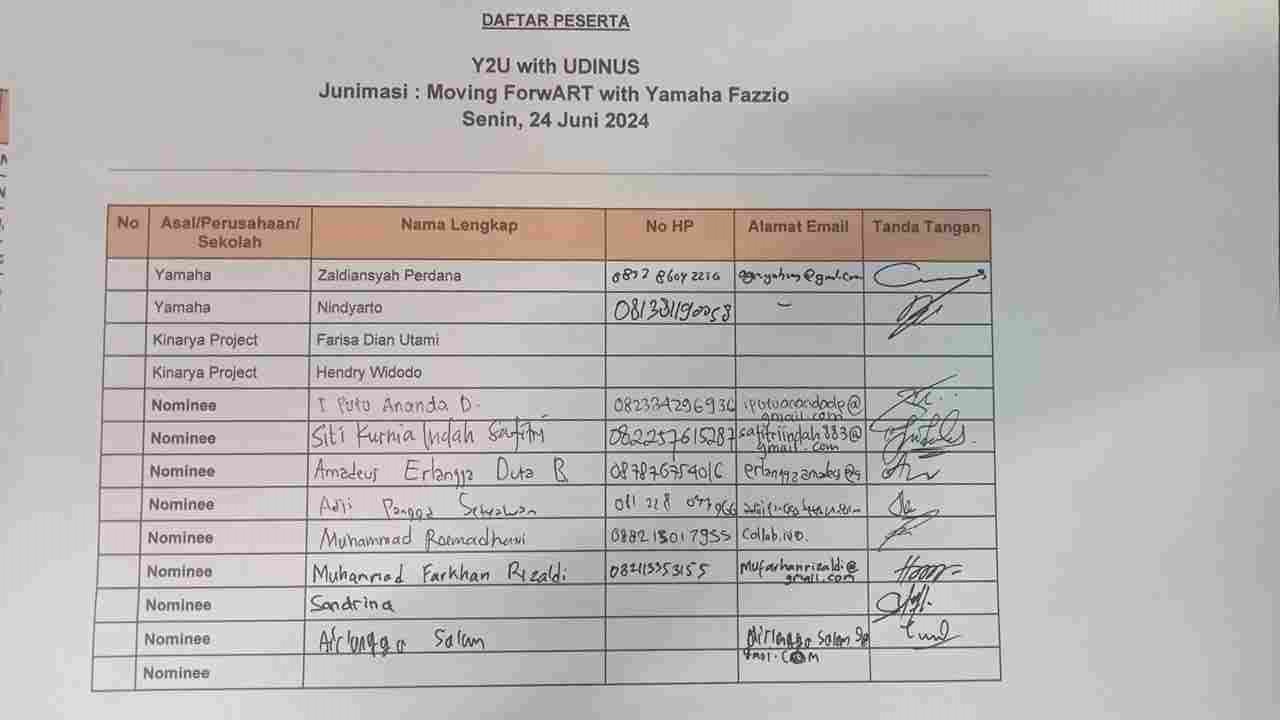 DAFTAR PESERTA
Y2U with UDINUS
Junimasi : Moving ForwART with Yamaha Fazzio
Senin, 24 Juni 2024
No Asal/Perusahaan/ Sekolah Nama Lengkap No HP Alamat Email Tanda Tangan
Yamaha Zaldiansyah Perdana
Yamaha Nindyarto 081381190058 -
Kinarya Project Farisa Dian Utami
Kinarya Project Hendry Widodo
Nominee I Putu Ananda D. 082334296936
gmail.com
Nominee Siti Kurnia Indah Safitri 082257615287 safitriindah883@
gmail.com
Nominee Amadeus Erlangga Duta B 087876754016
Nominee Adji Pangga Setyawan
Nominee Muhammad Romadhani 088213017955 Collab.ivo.
Nominee Muhammad Farkhan Rizaldi 082113353155 mufarhanrizaldi@
gmail.com
Nominee Sandrina
Nominee Airlangga Salam
Nominee